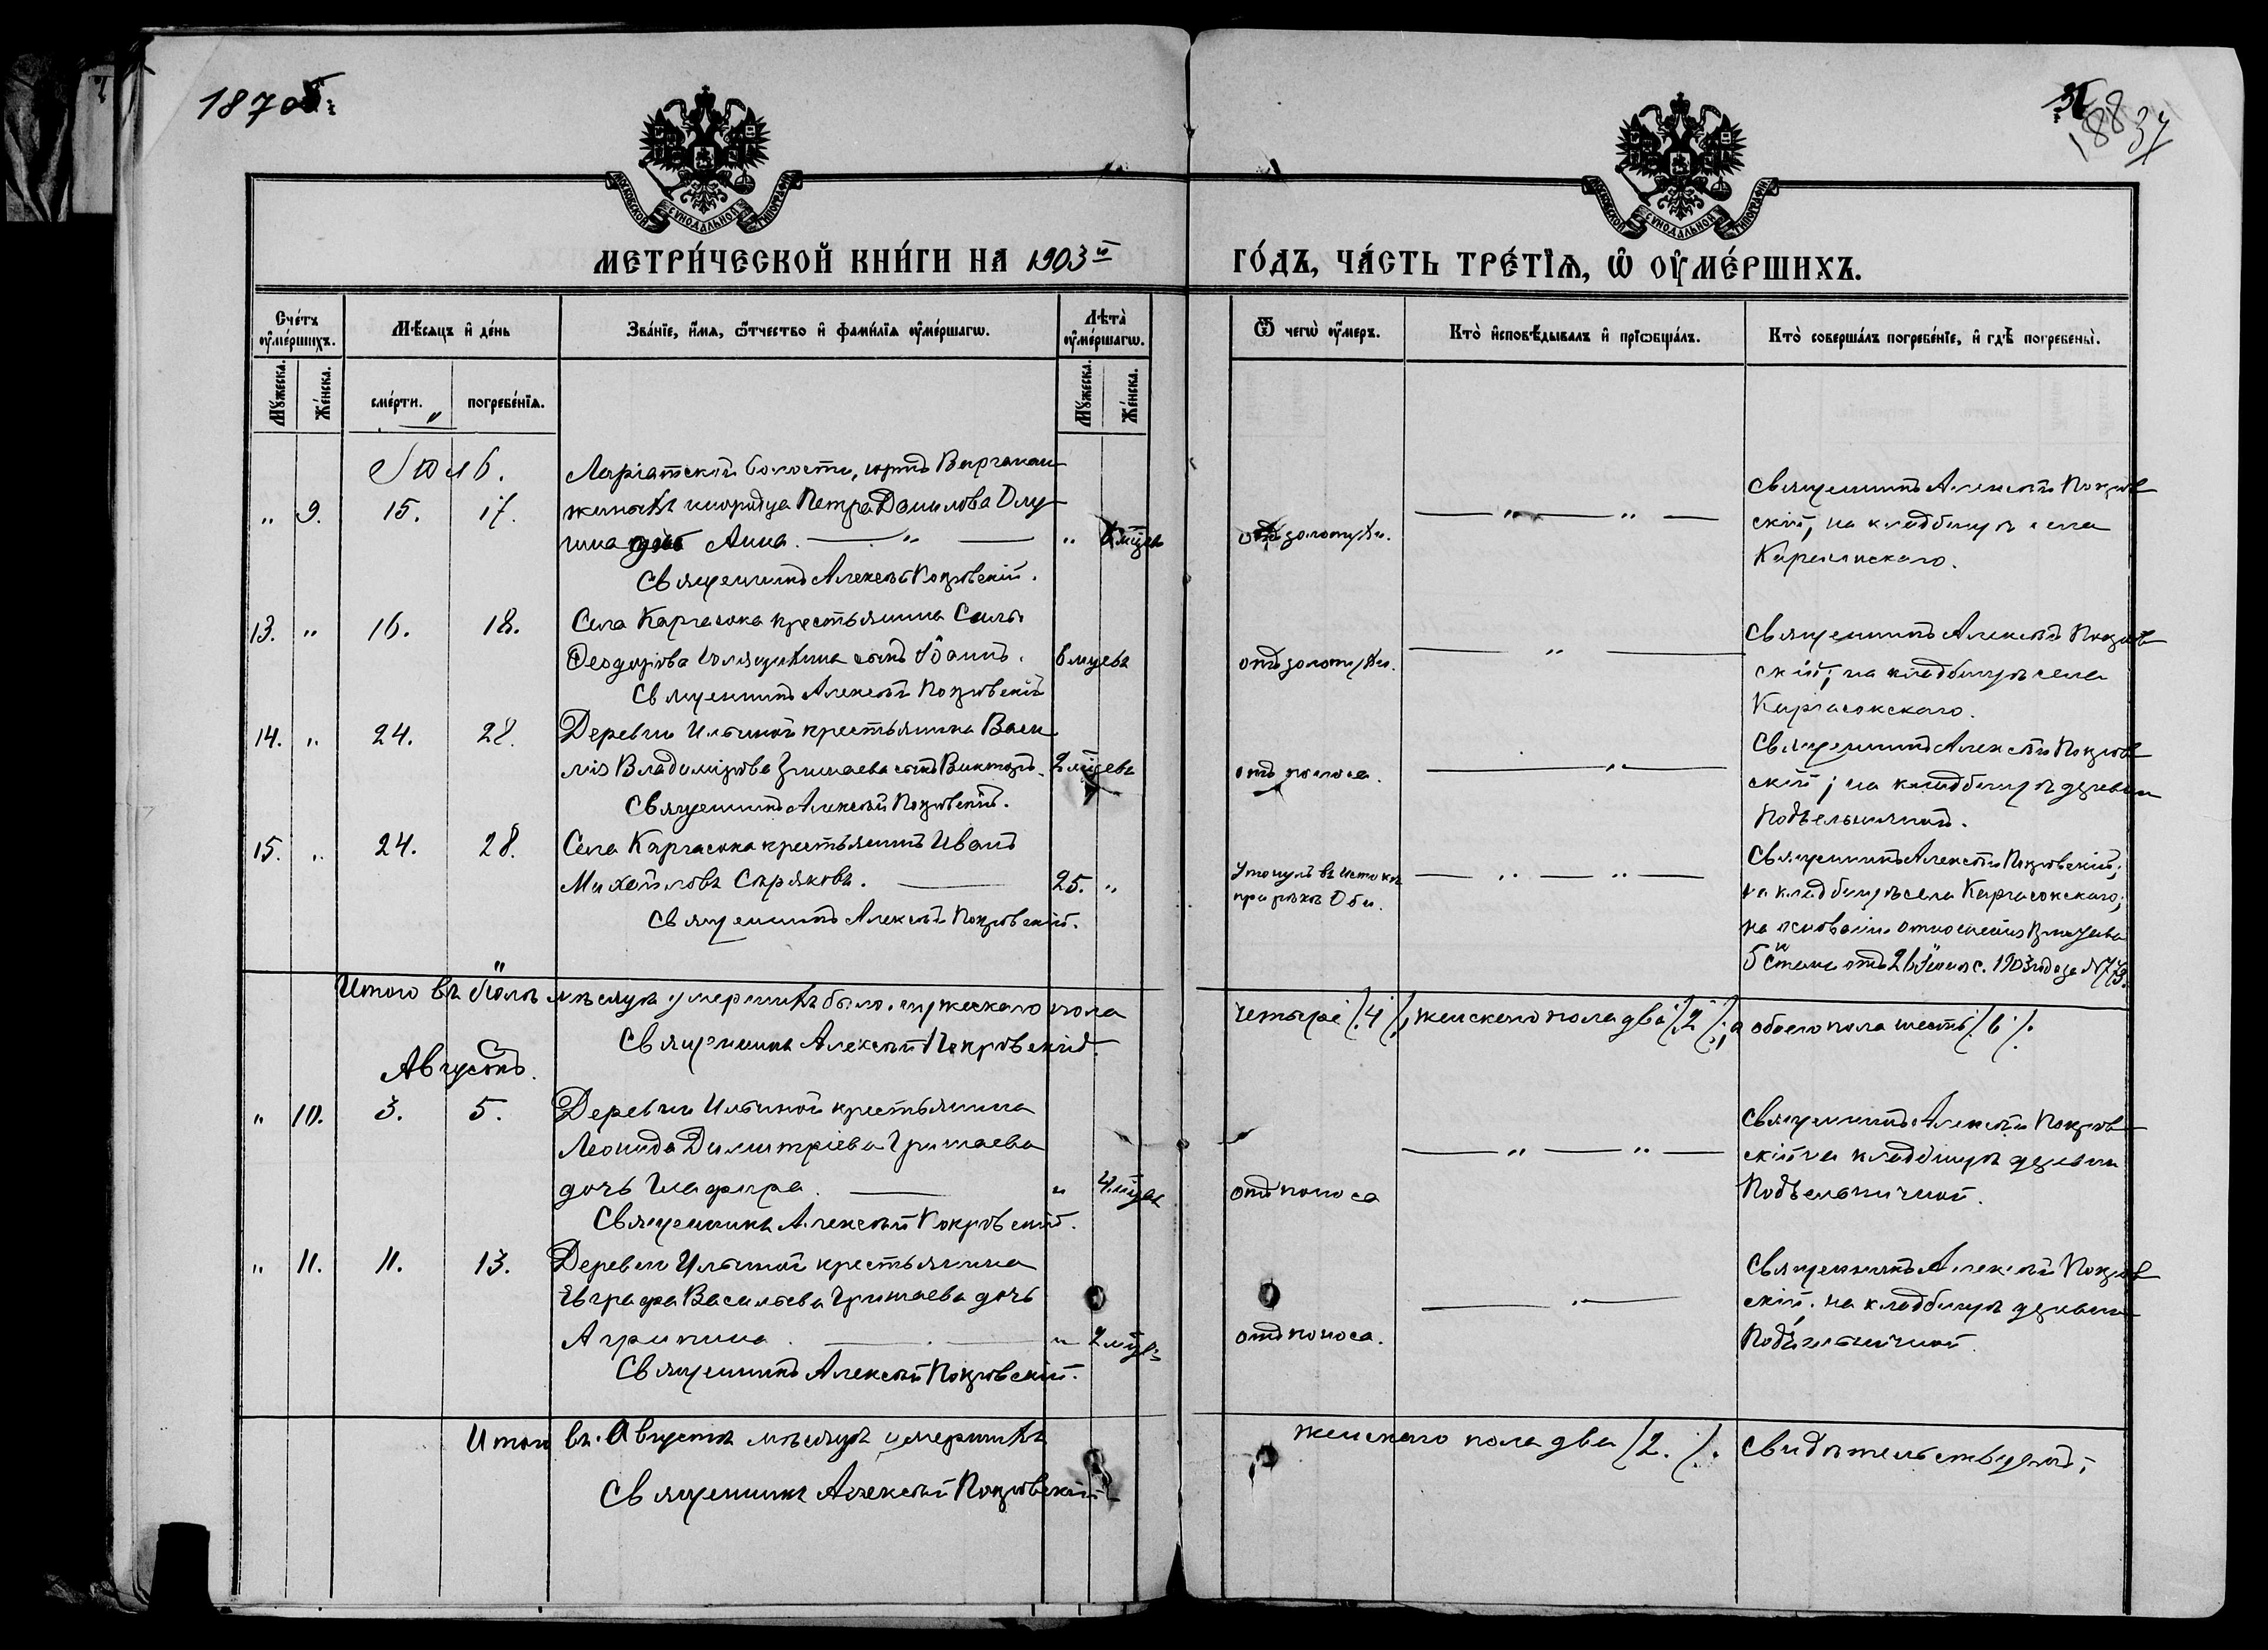 1870об:
188 37
МОСКОВСКОЙ СѴНОДАЛЬНОЙ ТИПОГРАФІИ.
МОСКОВСКОЙ СѴНОДАЛЬНОЙ ТИПОГРАФІИ.
МЕТРИ́ЧЕСКОЙ КНИ́ГИ НА 1903й ГО́ДЪ, ЧА́СТЬ ТРЕ́ТІѦ, Ѡ ОУ҆МЕ́РШИХЪ.
Сче́тъ оу҆ме́ршихъ.
Мꙋ́жеска.
Же́нска.
Мѣ́сяцъ и҆ де́нь
сме́рти.
погребе́нїѧ.
Зва́нїе, и҆́мѧ, ѻ҆́тчество и҆ фами́лїѧ оу҆ме́ршагѡ.
Лѣ̀та оу҆ме́ршагѡ.
Мꙋ́жеска.
Же́нска.
Ѿ чегѡ̀ оу҆́меръ.
Кто̀ и҆сповѣ́дывалъ и҆ прїѡбща́лъ.
Кто̀ соверша́лъ погребе́нїе, и҆ гдѣ̀ погребены̀.
Іюль.
" 9. 15. 17.
волости, юртъ
инородца Петра Данилова
дочь Анна. — " —
Священникъ Алексѣй Покровскій.
отъ золотухи.
— " — " —
Священникъ Алексѣй Покров
скій, на кладбищѣ села
Каргасокскаго.
13. " 16. 18.
Села Каргасока крестьянина Силы
Ѳеодорова сынъ Іоаннъ.
6 мцевъ
Священникъ Алексѣй Покровскій
отъ золотухи.
— " —
Священникъ Алексѣй Покров
скій; на кладбищѣ села
Каргасокскаго.
14. " 24. 28.
Деревни Ильиной крестьянина Васи
лія Владимірова Гришаева сынъ Викторъ.
2 мцевъ
Священникъ Алексѣй Покровскій.
отъ поноса.
— " —
Священникъ Алексѣй Покров
скій; на кладбищѣ деревни
Подъельничной.
15. " 24. 28.
Села Каргасока крестьянинъ Иванъ
Михайловъ Сѣряковъ. —
25. "
Священникъ Алексѣй Покровскій.
Утонулъ въ истокѣ
при рѣкѣ Оби.
— " — " —
Священникъ Алексѣй Покровскій;
на кладбищѣ села Каргасокскаго;
на основаніи отношенія
5 стана отъ 26 с. 1903 года за №
Итого въ Іюлѣ мѣсяцѣ умершихъ было: мужескаго пола четыре /4/, женскаго пола два /2/, а обоего пола шесть /6/.
Священникъ Алексѣй Покровскій.
Августъ.
" 10. 3. 5.
Деревни Ильиной крестьянина
Леонида Димитріева Гришаева
дочь Глафира. —
" 4 мцвъ
Священникъ Алексѣй Покровскій.
отъ поноса
— " — " —
Священникъ Алексѣй Покров
скій на кладбищѣ деревни
Подъельничной.
" 11. 11. 13.
Деревни Ильиной крестьянина
Евграфа Васильева Гришаева дочь
Агрипина. —
" 2 мцв:
Священникъ Алексѣй Покровскій.
отъ поноса.
— " —
Священникъ Алексѣй Покров
скій. на кладбищѣ деревни
Подъельничной.
Итого въ Августѣ мѣсяцѣ умершихъ женскаго пола два /2./. Свидѣтельствуемъ;
Священникъ Алексѣй Покровскій